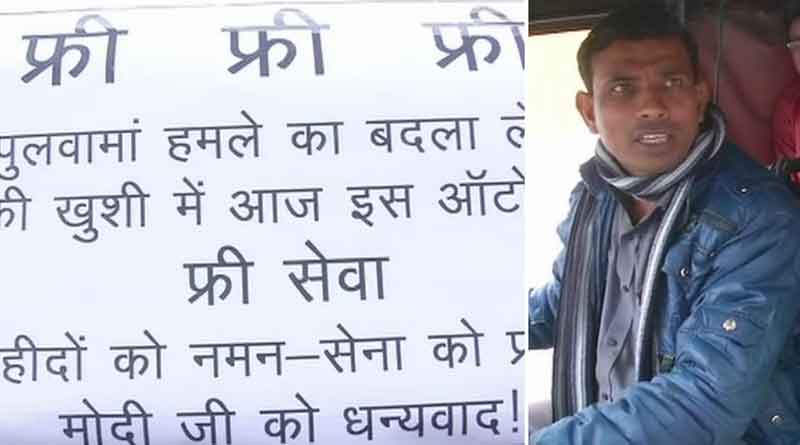 फ्री फ्री फ्री
पुलवामां हमले का बदला ले
की खुशी में आज इस ऑटो
फ्री सेवा
हीदों को नमन–सेना को
मोदी जी को धन्यवाद!